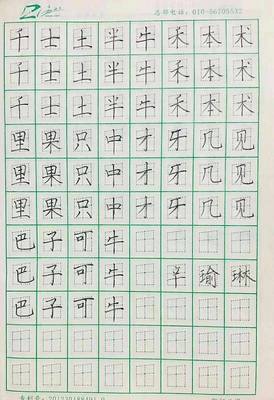 总部电话：010-56705532
千士土半牛禾本术
千士土半牛禾本术
千士土半牛禾本术
里果只中才牙几见
里果只中才牙几见
里果只中才牙几见
巴子可牛
巴子可牛 辛瑜琳
巴子可牛